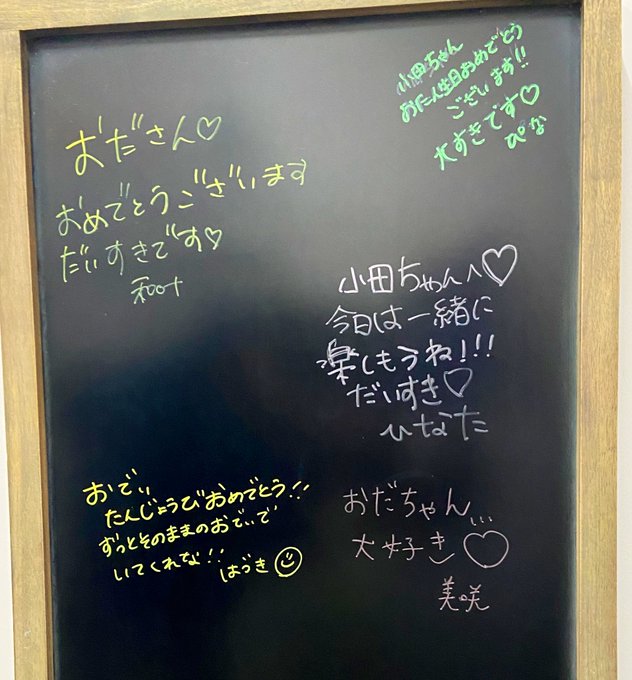 おださん♡
おめでとうございます
だいすきです♡
小田ちゃん
お仁人生日おめでとう
ございます!!
大すきです♡
ぴな
小田ちゃんへ♡
今日は一緒に
楽しもうね!!!
だいすき♡
ひなた
おでぃ
たんじょうびおめでとう!!
ずっとそのままのおでぃで
いてくれでな!!
はづき
おだちゃん
大好き♡
美咲